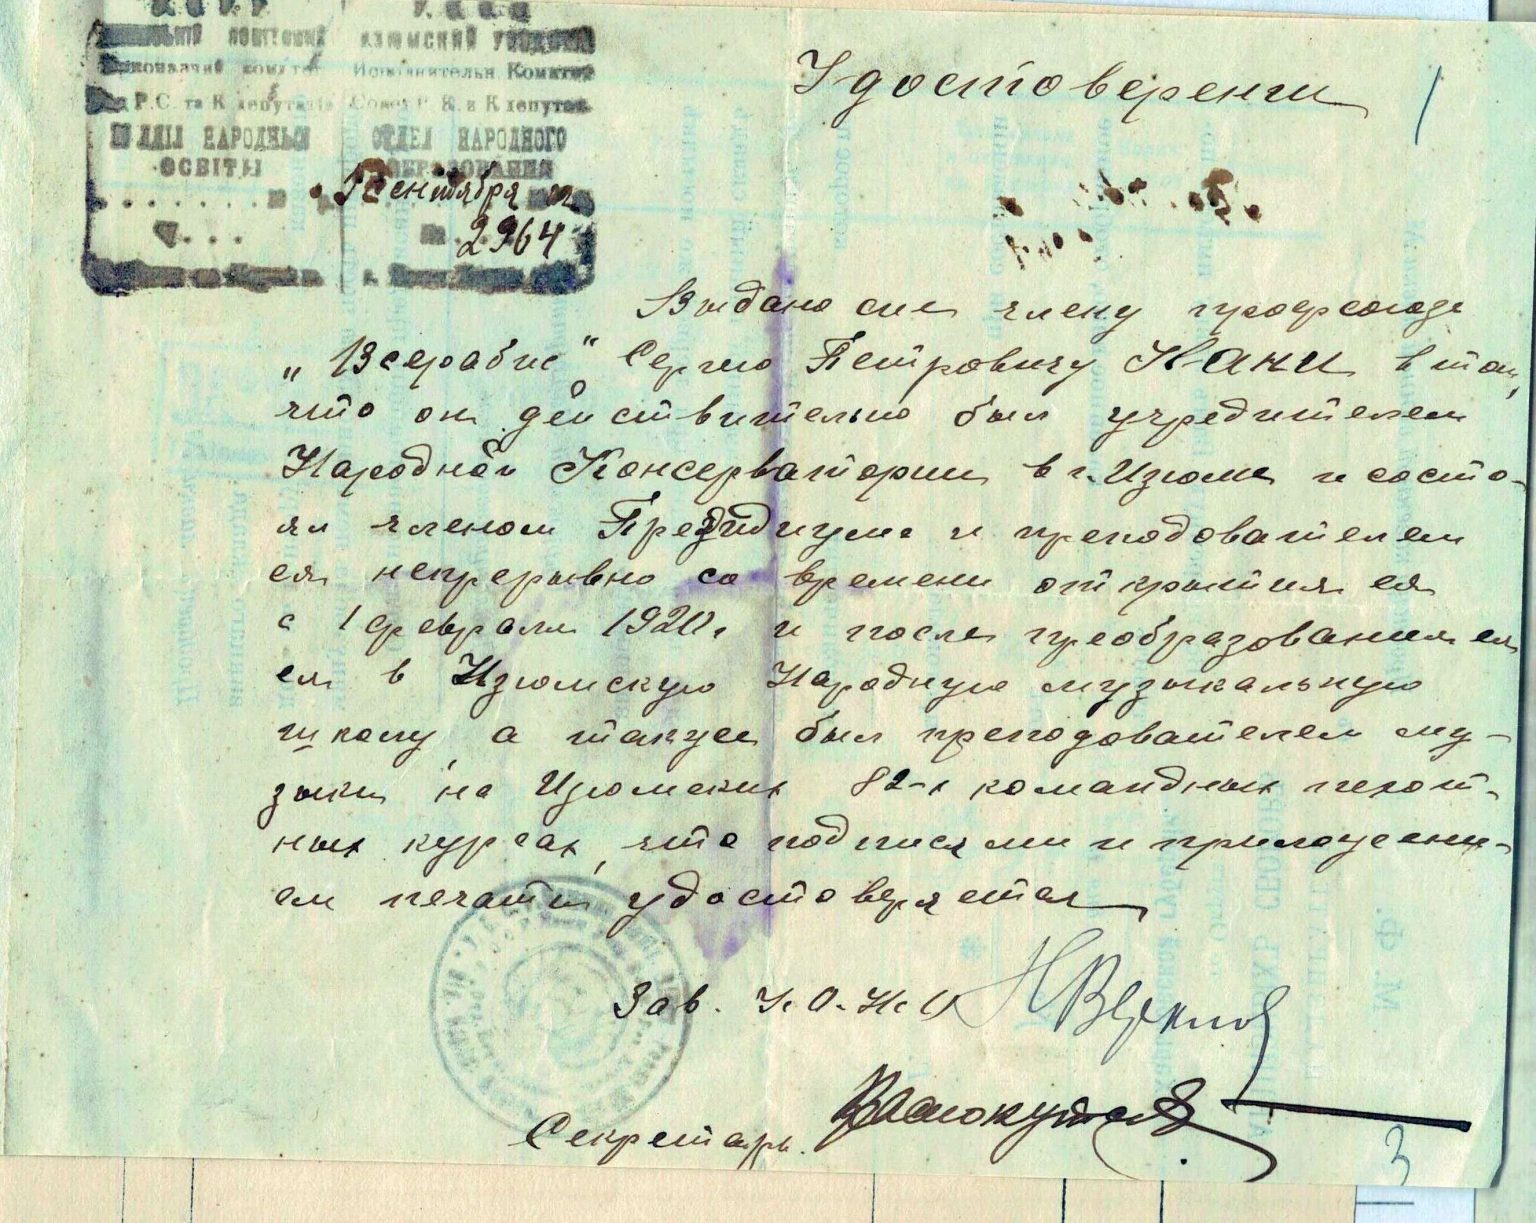 У.С.С.Р.
ИЗЮМСКИЙ УЕЗДНЫЙ
Виконавчий комітет Исполнительн Комитет
Р.С. та К депутатів Совет Р. К. и К депутов
ВІДДІЛ НАРОДНЬОЇ ОТДЕЛ НАРОДНОГО
ОСВІТЫ ОБРАЗОВАНИЯ
Сентября
№ 2964
Удостоверение
1
Выдано сие члену профсоюза
„Всерабис" Сергею Петровичу Кани в том,
что он действительно был учредителем
Народной Консерватории в г. Изюме и состо-
ял членом Президиума и преподователем
ея непрерывно со времени открытия ея
с 1 февраля 1920 г. и после преобразования ея
ея в Изюмскую Народную музыкальную
школу, а также был преподователем му-
зыки на Изюмских 82-х командных пехот-
ных курсах, что подписями и приложени-
ем печати удостоверяется
Зав. У.О.Н.О
Секретарь.
3